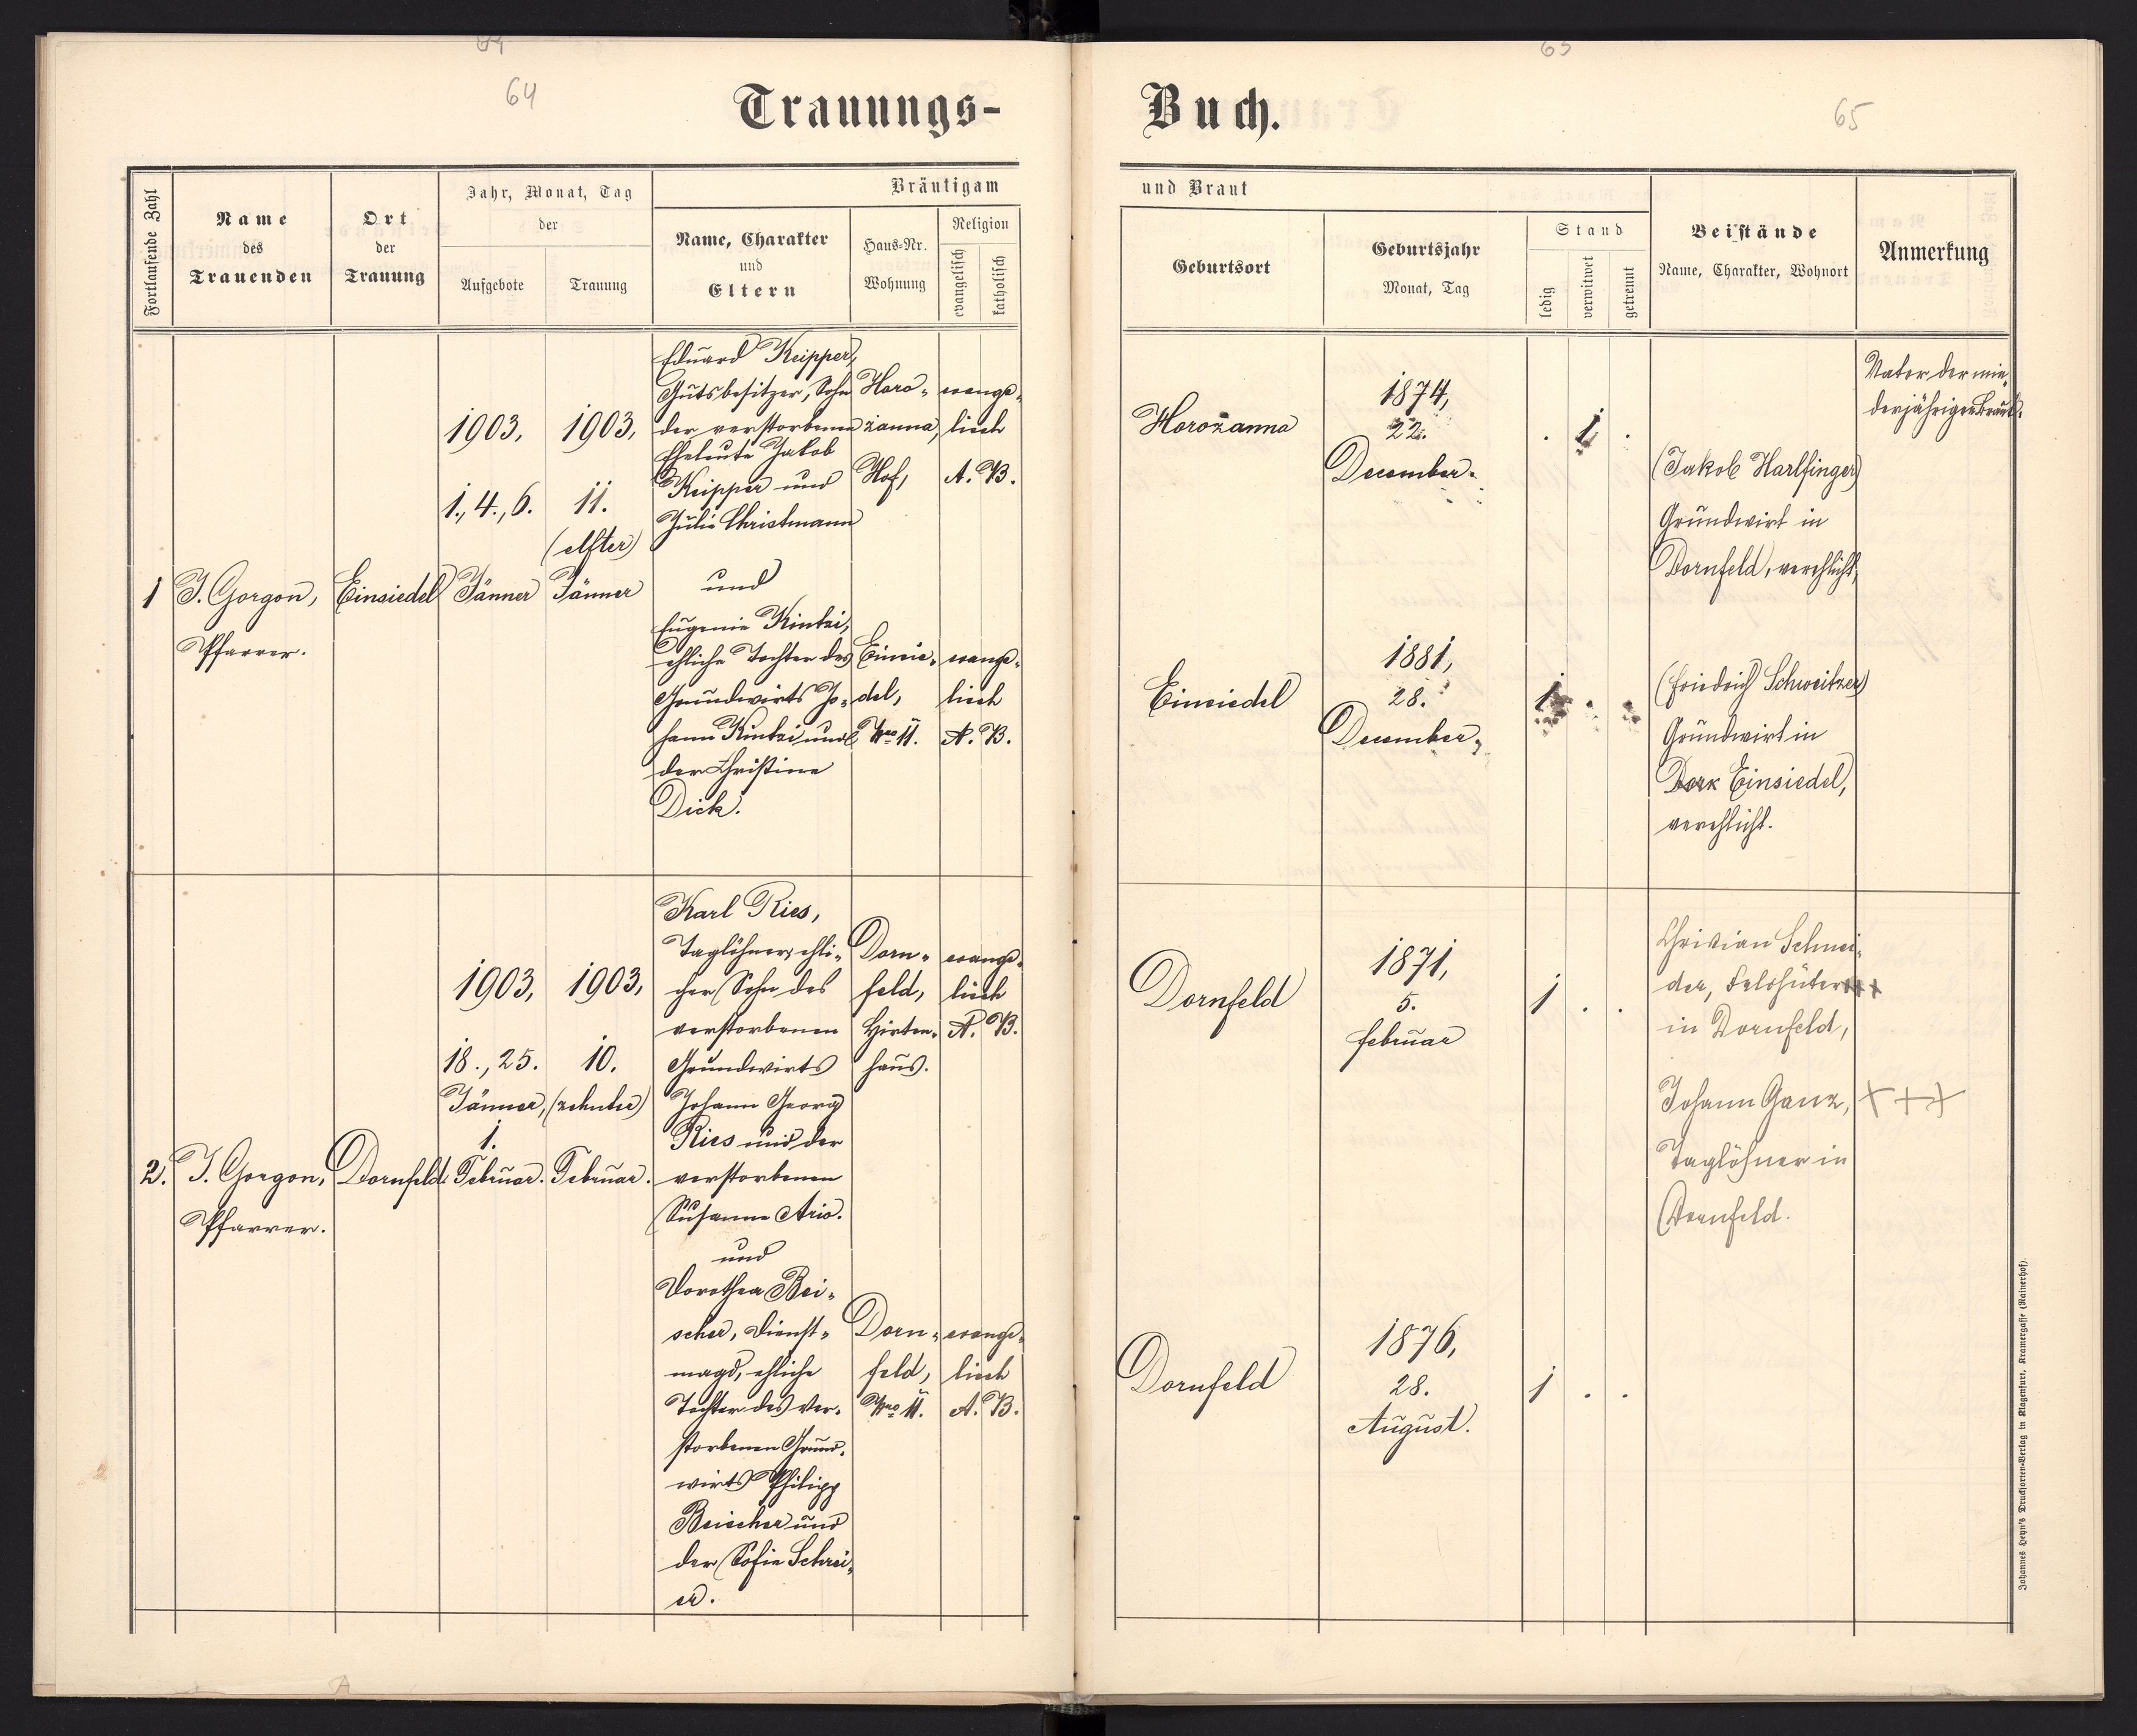 64
65
64
65
Trauungs-
Buch.
Fortlaufende Zahl
Name
des
Trauenden
Ort
der
Trauung
Jahr, Monat, Tag
der
Aufgebote
Trauung
Bräutigam
Name, Charakter
und
Eltern
Haus-Nr.
Wohnung
Religion
evangelisch
katholisch
und Braut
Geburtsort
Geburtsjahr
Monat, Tag
Stand
ledig
verwitwet
getrennt
Beistände
Name, Charakter, Wohnort
Anmerkung
1
J. Gorgon,
Pfarrer.
Einsiedel
1903,
1., 4., 6.
Jänner
1903,
11.
(elfter)
Jänner
Eduard Keipper,
Gutsbesitzer, Sohn
der verstorbenen
Eheleute Jakob
Keipper und
Julie Christmann
und
Eugenie Kintzi,
ehliche Tochter des
Grundwirts Jo-
hann Kintzi und
der Christine
Dick.
Horo-
żanna,
Hof,
Einsie-
del,
Nro 11.
evange-
lisch
A. B.
evange-
lisch
A. B.
Horożanna
1874,
22.
December.
. 1 .
Einsiedel
1881,
28.
December,
1 . .
Jakob Harlfinger
Grundwirt in
Dornfeld, verehlicht,
Friedrich Schweitzer
Grundwirt in
Einsiedel,
verehlicht.
Vater der min-
derjährigen Braut.
2.
J. Gorgon,
Pfarrer.
Dornfeld.
1903,
18., 25.
Jänner,
1.
Februar.
1903,
10.
(zehnter)
Februar.
Karl Ries,
Taglöhner, ehli-
cher Sohn des
verstorbenen
Grundwirts
Johann Georg
Ries und der
verstorbenen
Susanne Ario.
und
Dorothea Bei-
scher, Dienst-
magd, ehliche
Tochter des ver-
storbenen Grund-
wirts Philipp
Beischer und
der Sofie Schrei-
er.
Dorn-
feld,
Hirten-
haus.
Dorn-
feld,
Nro 11.
evange-
lisch
A. B.
evange-
lisch
A. B.
Dornfeld
1871,
5.
Februar
1 . .
Dornfeld
1876,
28.
August.
1 . .
Christian Schnei-
der, Feldhüter +++
in Dornfeld,
Johann Ganz, +++
Taglöhner in
Dornfeld.
Johannes Heyn's Drucksorten-Verlag in Klagenfurt, Kramergasse (Rainerhof).